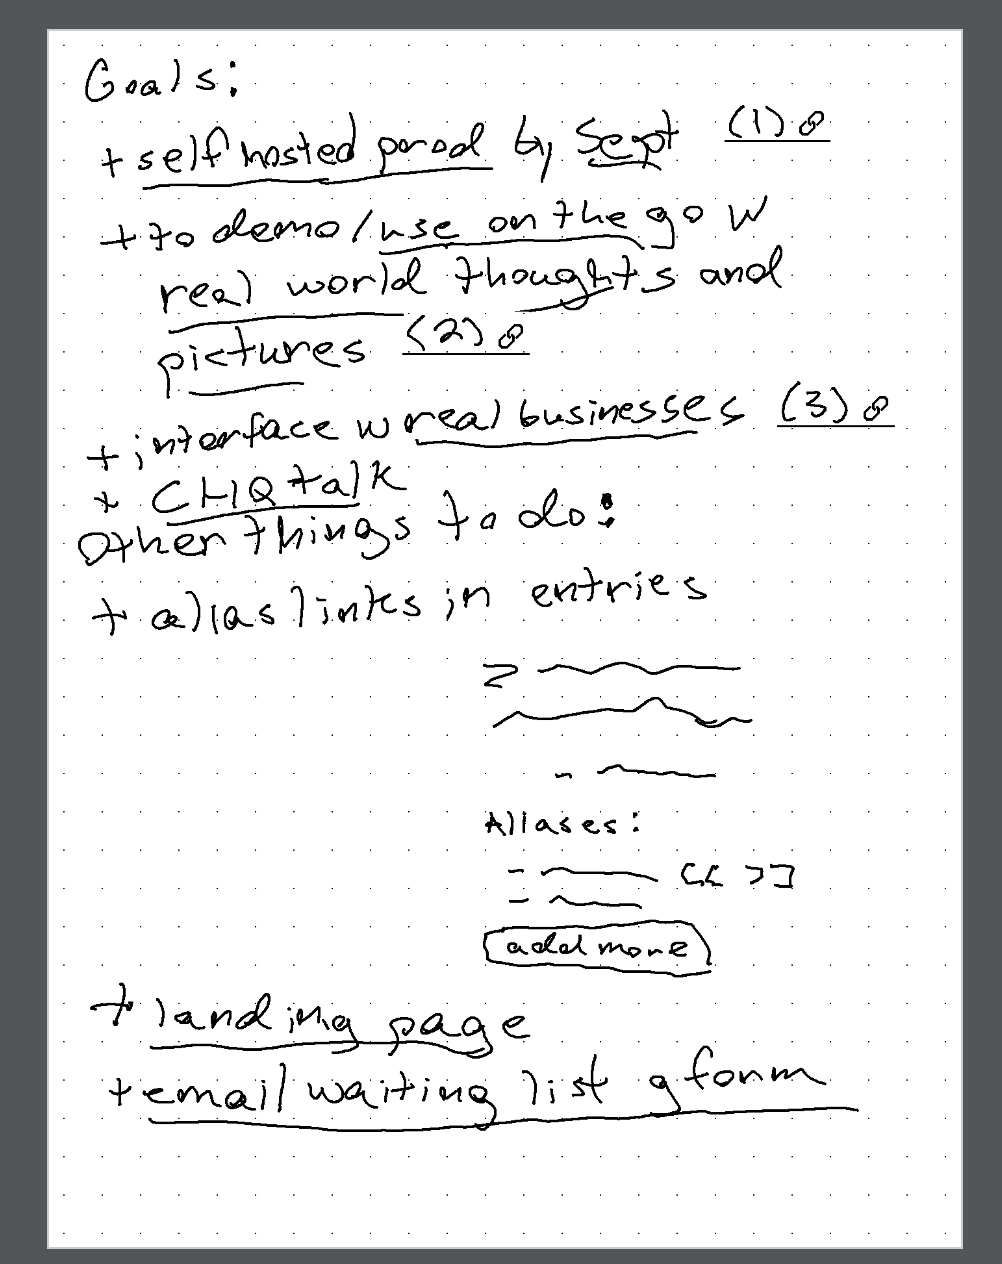 Goals:
+ self hosted parod by Sept (1)
+ to demo/use on the go w
real world thoughts and
pictures (2)
+ interface w real businesses (3)
+ CHQ talk
Other things to do:
+ alias links in entries
Aliases:
- [[ ]]
add more
+ landing page
+ email waiting list g form